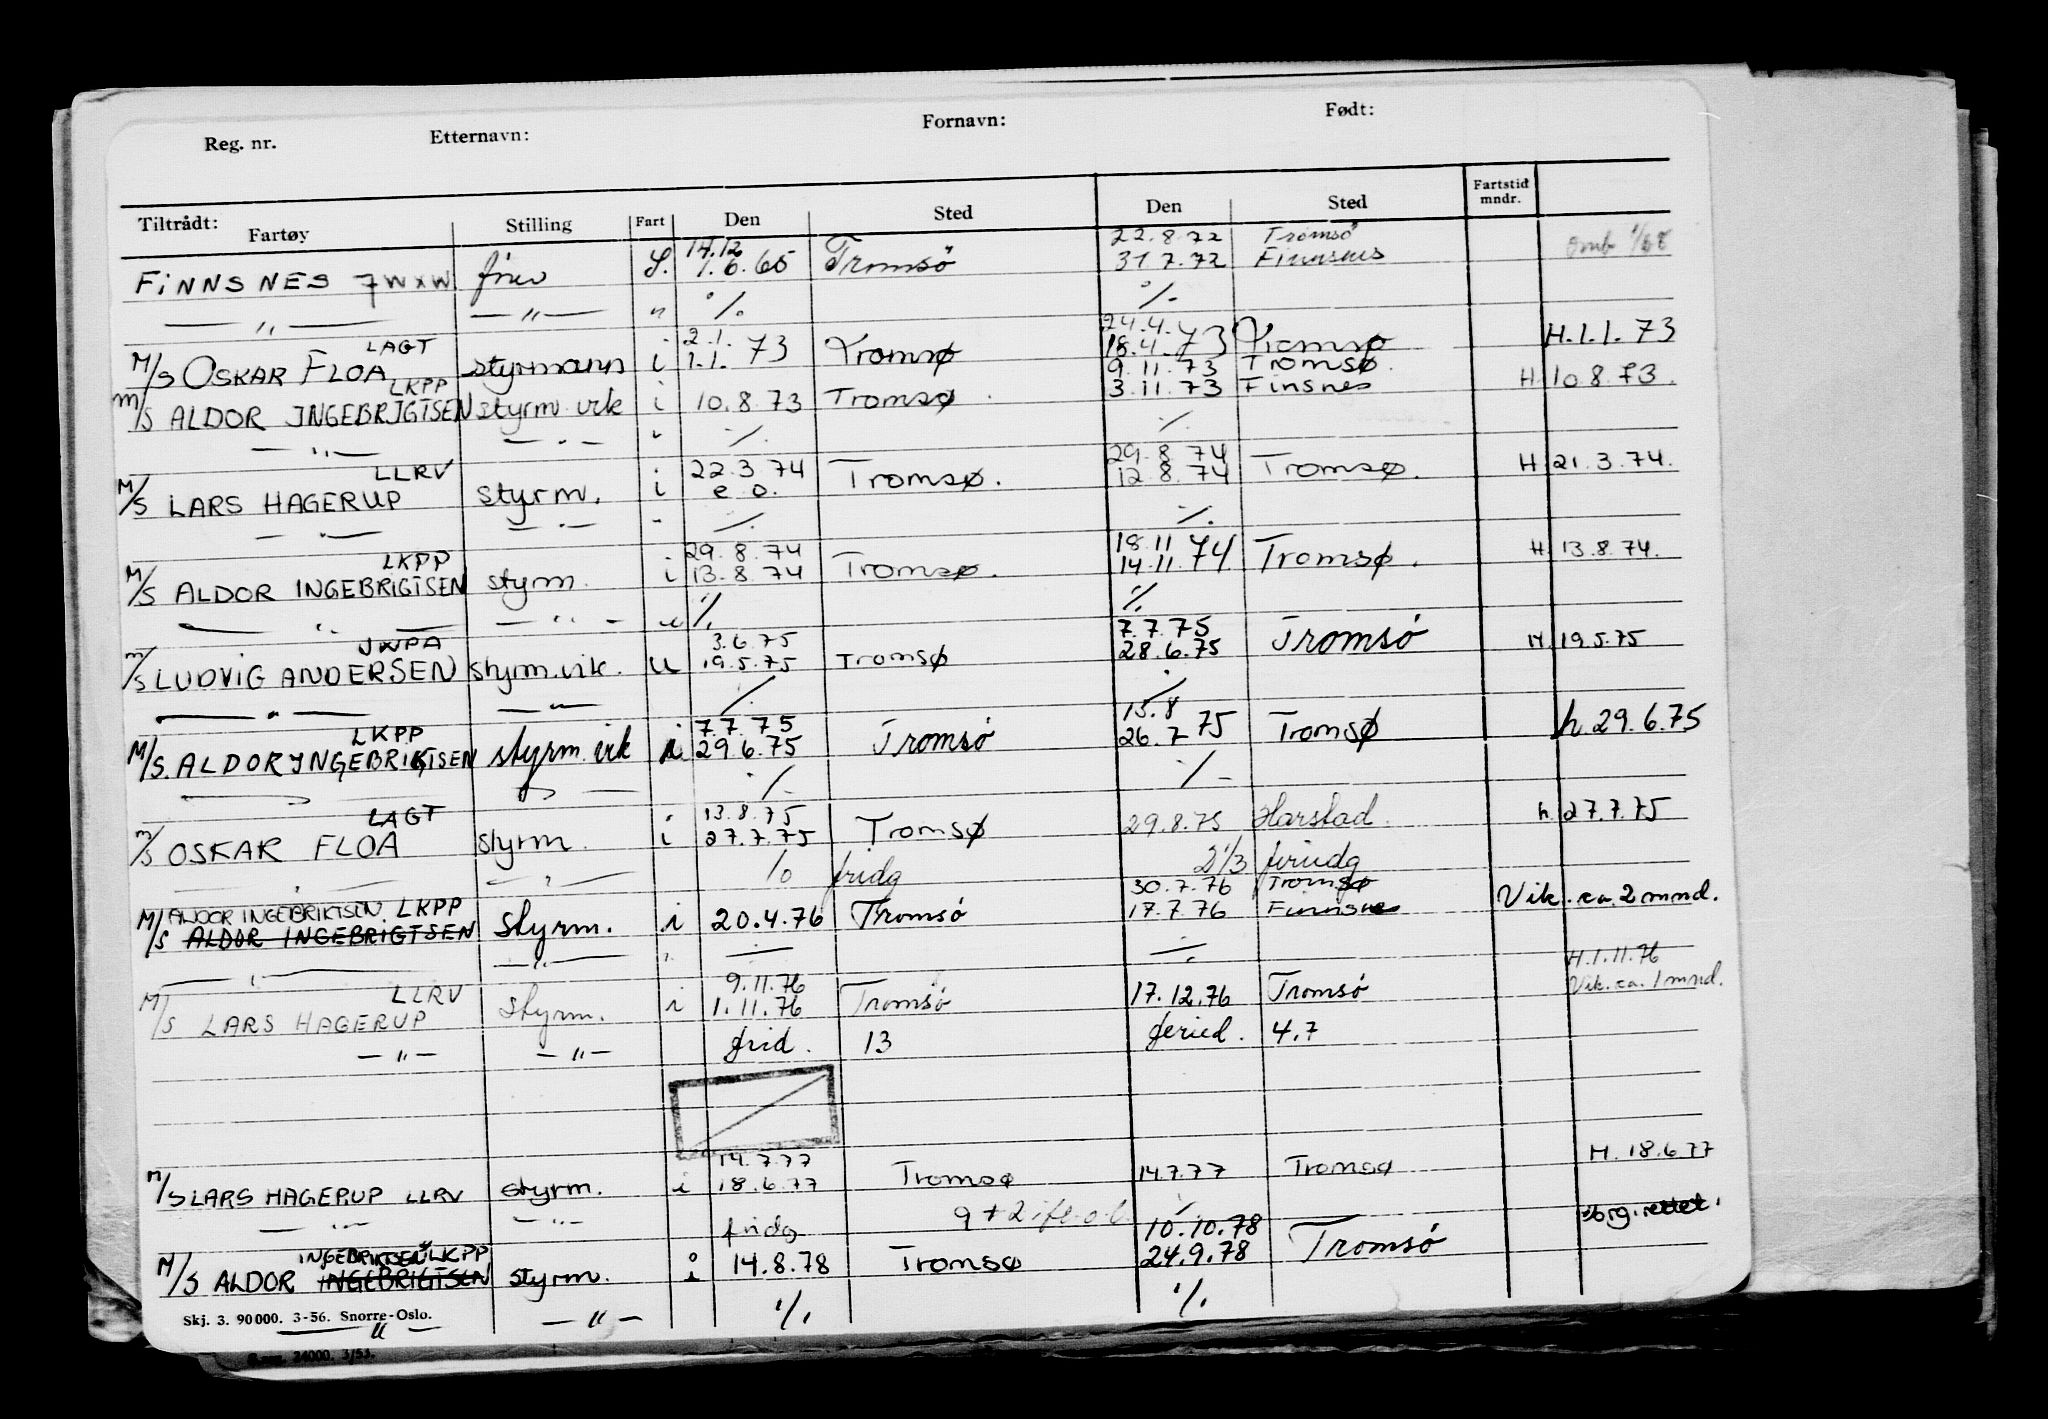 Reg. nr. Etternavn: Fornavn: Født:
Tiltrådt: Fartøy Stilling Fart Den Sted Den Sted Fartstid mndr.
14.12 22.8.72 Tromsø
FINNSNES 7WXW S. 1.6.65 Tromsø 31.7.72 Finnsnes omb 1/68
— " — — " — " ./. ./.
LAGT 2.1. 24.4.
M/S OSKAR FLOA styrmann i 1.1. 73 Tromsø 18.4. 73 Tromsø H.1.1.73
LKPP 9.11.73 Tromsø.
M/S ALDOR INGEBRIGTSEN styrm vik i 10.8.73 Tromsø. 3.11.73 Finsnes H. 10 8.73.
— " — — " — " ./. ./.
LLRV 22.3.74 29.8.74
M/S LARS HAGERUP styrm. i e.o. Tromsø. 12.8.74 Tromsø. H 21.3.74.
— " — — " — - ./. ./.
LKPP 29.8.74 18.11
M/S ALDOR INGEBRIGTSEN styrm. i 13.8.74 Tromsø. 14.11.74 Tromsø. H. 13.8.74.
— " — — " — u ./. ./.
JWPA 3.6.75 7.7.75
M/S LUDVIG ANDERSEN styrm.vik. u 19.5.75 Tromsø 28.6.75 Tromsø H. 19.5.75
— " — — " — ./. ./.
LKPP 7.7.75 15.8
M/S. ALDOR INGEBRIGTSEN styrm vik i 29.6.75 Tromsø 26.7 75 Tromsø h.29.6.75
./. ./.
LAGT 13.8.75
M/S OSKAR FLOA styrm. i 27.7.75 Tromsø 29.8.75 Harstad. h. 27.7.75
— " — 10 fridg 2 1/3 feriedg
ALDOR INGEBRIKTSEN. LKPP 30.7.76 Tromsø
M/S ALDOR INGEBRIGTSEN styrm. i 20.4.76 Tromsø 17.7.76 Finnsnes Vik. ca. 2 mnd.
— " — — " — " ./. ./.
9.11.76 H.1.11.76
LLRV
M/S LARS HAGERUP styrm. i 1.11.76 Tromsø 17.12.76 Tromsø Vik. ca. 1 mnd.
— " — — " — frid. 13 feried. 4.7
14.7.77
M/S LARS HAGERUP LLRV styrm. i 18.6.77 Tromsø 14.7.77 Tromsø H. 18.6.77
— " — — " — fridg 9 + 2 ./.
INGEBRIKTSEN LKPP 10.10.78
M/S ALDOR INGEBRIGTSEN styrm. i 14.8.78 Tromsø 24.9.78 Tromsø
Skj. 3. 90000. 3-56. Snorre-Oslo.
— " — — " — ./. ./.
24000. 3/53.